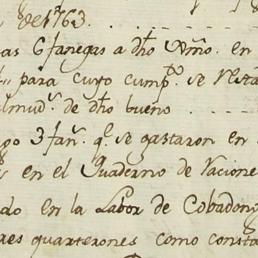 de 1763.
as 6 fanegas a dho Nro. en
para cuyo cump.to se resta
lmud.s de dho bueno
go 3 fan.s q.e se gastaron en
en el Quaderno de Racione
do en la Labor de Cobadon
res quarterones como consta